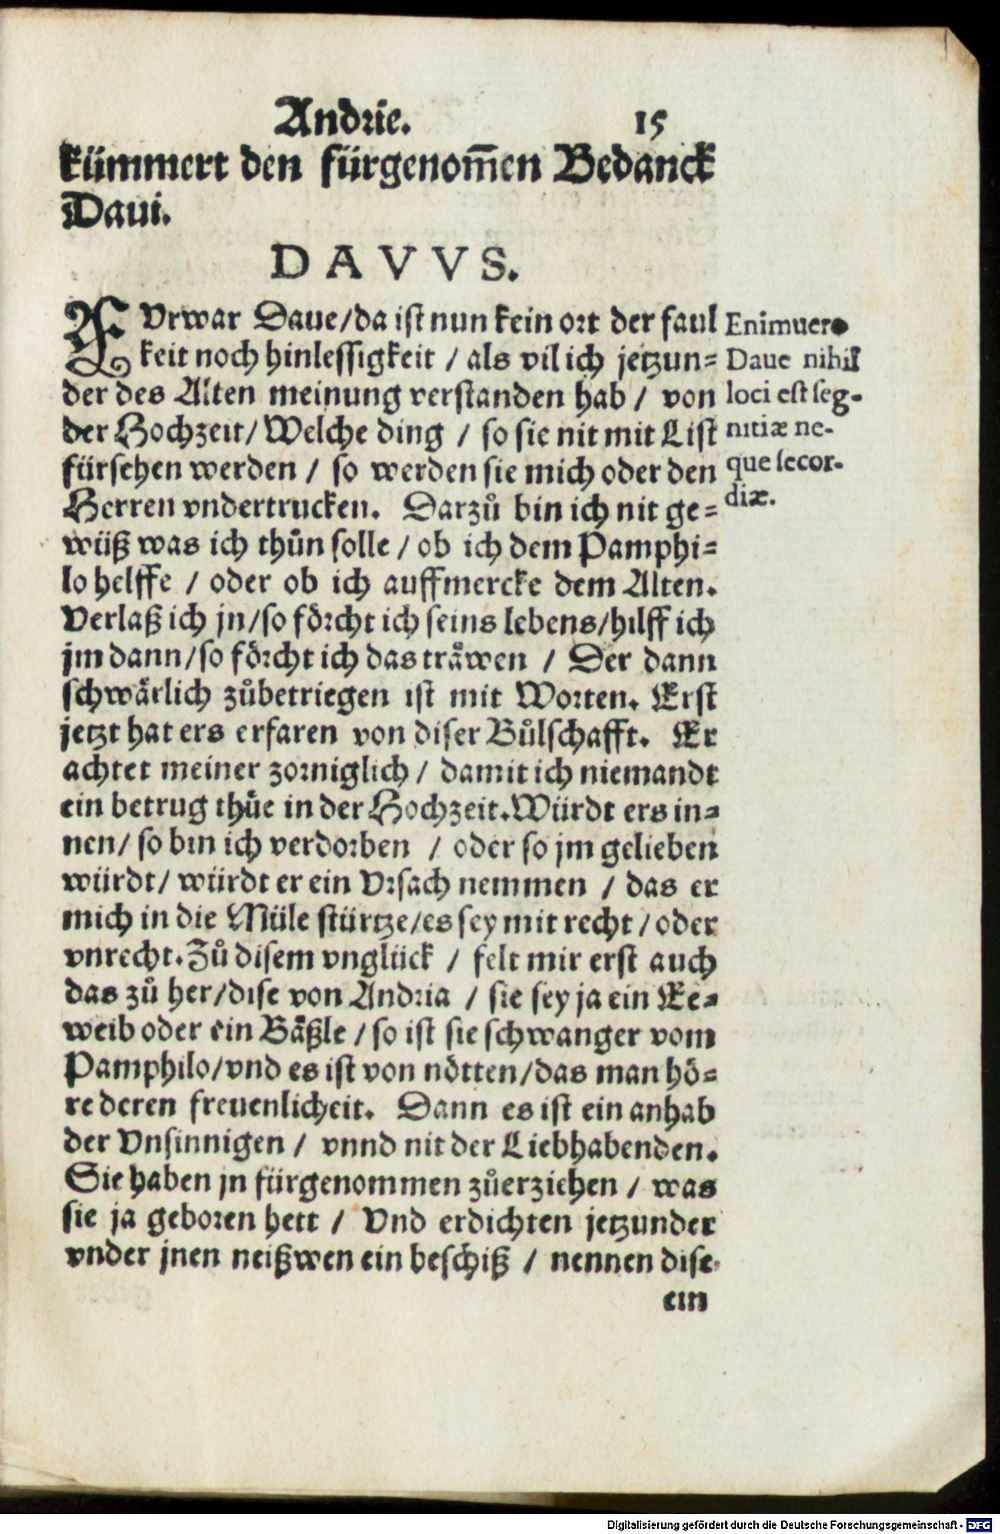 Andrie. 15
kümmert den fürgenom̅en Bedanck
Daui.
DAVVS.
FVrwar Daue/da ist nun kein ort der faul
keit noch hinlessigkeit / als vil ich jetzun=
der des Alten meinung verstanden hab / von
der Hochzeit/ Welche ding / so sie nit mit List
fürsehen werden / so werden sie mich oder den
Herren vndertrucken. Darzů bin ich nit ge=
wüß was ich thůn solle / ob ich dem Pamphi=
lo helffe / oder ob ich auffmercke dem Alten.
Verlaß ich jn/so förcht ich seins lebens/hilff ich
jm dann/so förcht ich das träwen / Der dann
schwärlich zůbetriegen ist mit Worten. Erst
jetzt hat ers erfaren von diser Bůlschafft. Er
achtet meiner zorniglich / damit ich niemandt
ein betrug thüe in der Hochzeit. Würdt ers in=
nen/ so bin ich verdorben / oder so jm gelieben
würdt/ würdt er ein Vrsach nemmen / das er
mich in die Müle stürtze/es sey mit recht / oder
vnrecht. Zů disem vnglück / felt mir erst auch
das zů her/dise von Andria / sie sey ja ein Ee=
weib oder ein Bäßle / so ist sie schwanger vom
Pamphilo/vnd es ist von nötten/das man hö=
re deren freuenlicheit. Dann es ist ein anhab
der Vnsinnigen / vnnd nit der Liebhabenden.
Sie haben jn fürgenommen zůerziehen / was
sie ja geboren hett / Vnd erdichten jetzunder
vnder jnen neißwen ein beschiß / nennen dise
ein
Enimuero
Daue nihil
loci est seg-
nitiæ ne-
que secor-
diæ.
Digitalisierung gefördert durch die Deutsche Forschungsgemeinschaft - DFG